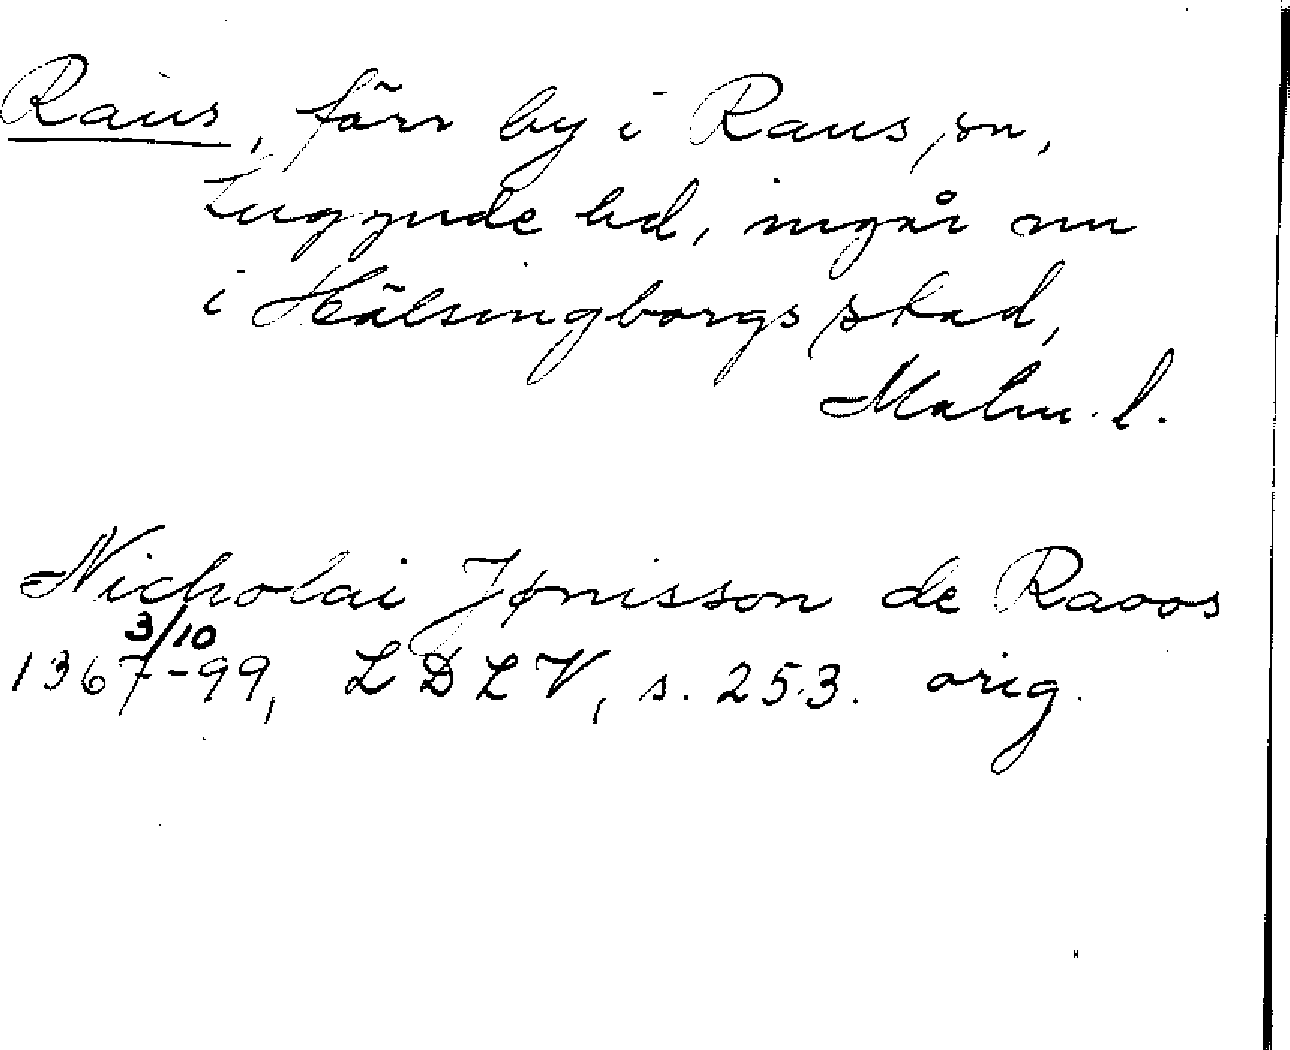 Raus, förr by i Raus sn,
Luggude hd, ingår nu
i Hälsingborgs stad,
Malm. l.
Nicholai Jønisson de Raoos
3/10
1367-99, LDLV, s. 253. orig.